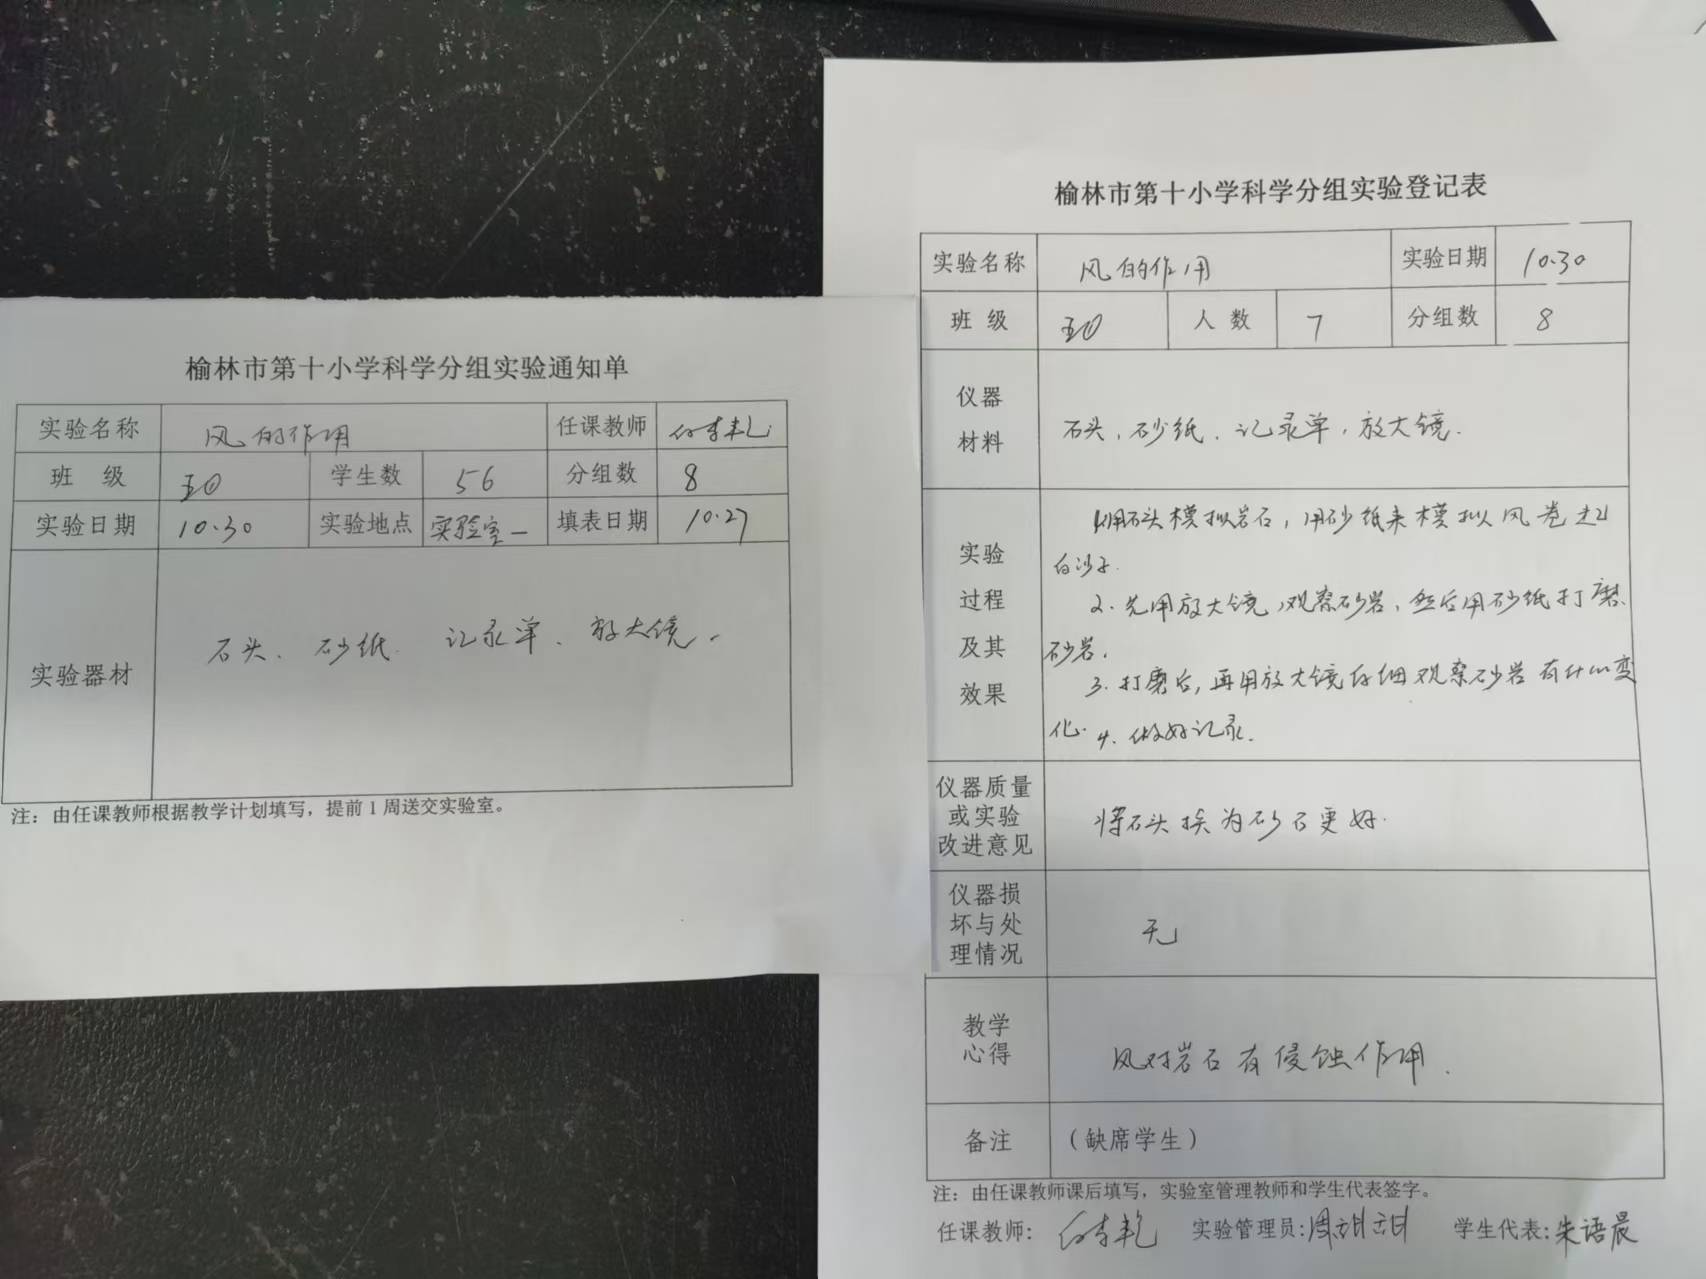 榆林市第十小学科学分组实验通知单
实验名称 风的作用 任课教师
班 级 五④ 学生数 56 分组数 8
实验日期 10.30 实验地点 实验室一 填表日期 10.27
实验器材 石头、砂纸、记录单、放大镜.
注：由任课教师根据教学计划填写，提前1周送交实验室。
榆林市第十小学科学分组实验登记表
实验名称 风的作用 实验日期 10.30
班 级 五④ 人 数 7 分组数 8
仪器
材料
石头、砂纸、记录单、放大镜.
实验
过程
及其
效果
1.用石头模拟岩石，用砂纸来模拟风卷起
的沙子.
2.先用放大镜观察砂岩，然后用砂纸打磨
砂岩.
3.打磨后，再用放大镜仔细观察砂岩有什么变
化. 4.做好记录.
仪器质量
或实验
改进意见
将石头换为砂石更好.
仪器损
坏与处
理情况
无
教学
心得
风对岩石有侵蚀作用.
备注 （缺席学生）
注：由任课教师课后填写，实验室管理教师和学生代表签字。
任课教师： 实验管理员:周甜甜 学生代表:朱语晨